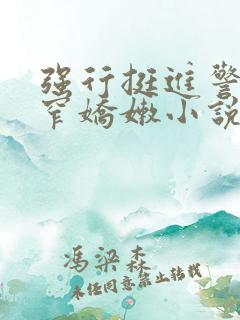 强行挺进警
窄嬌嫩小說
馮梁森
未经同意禁止转载